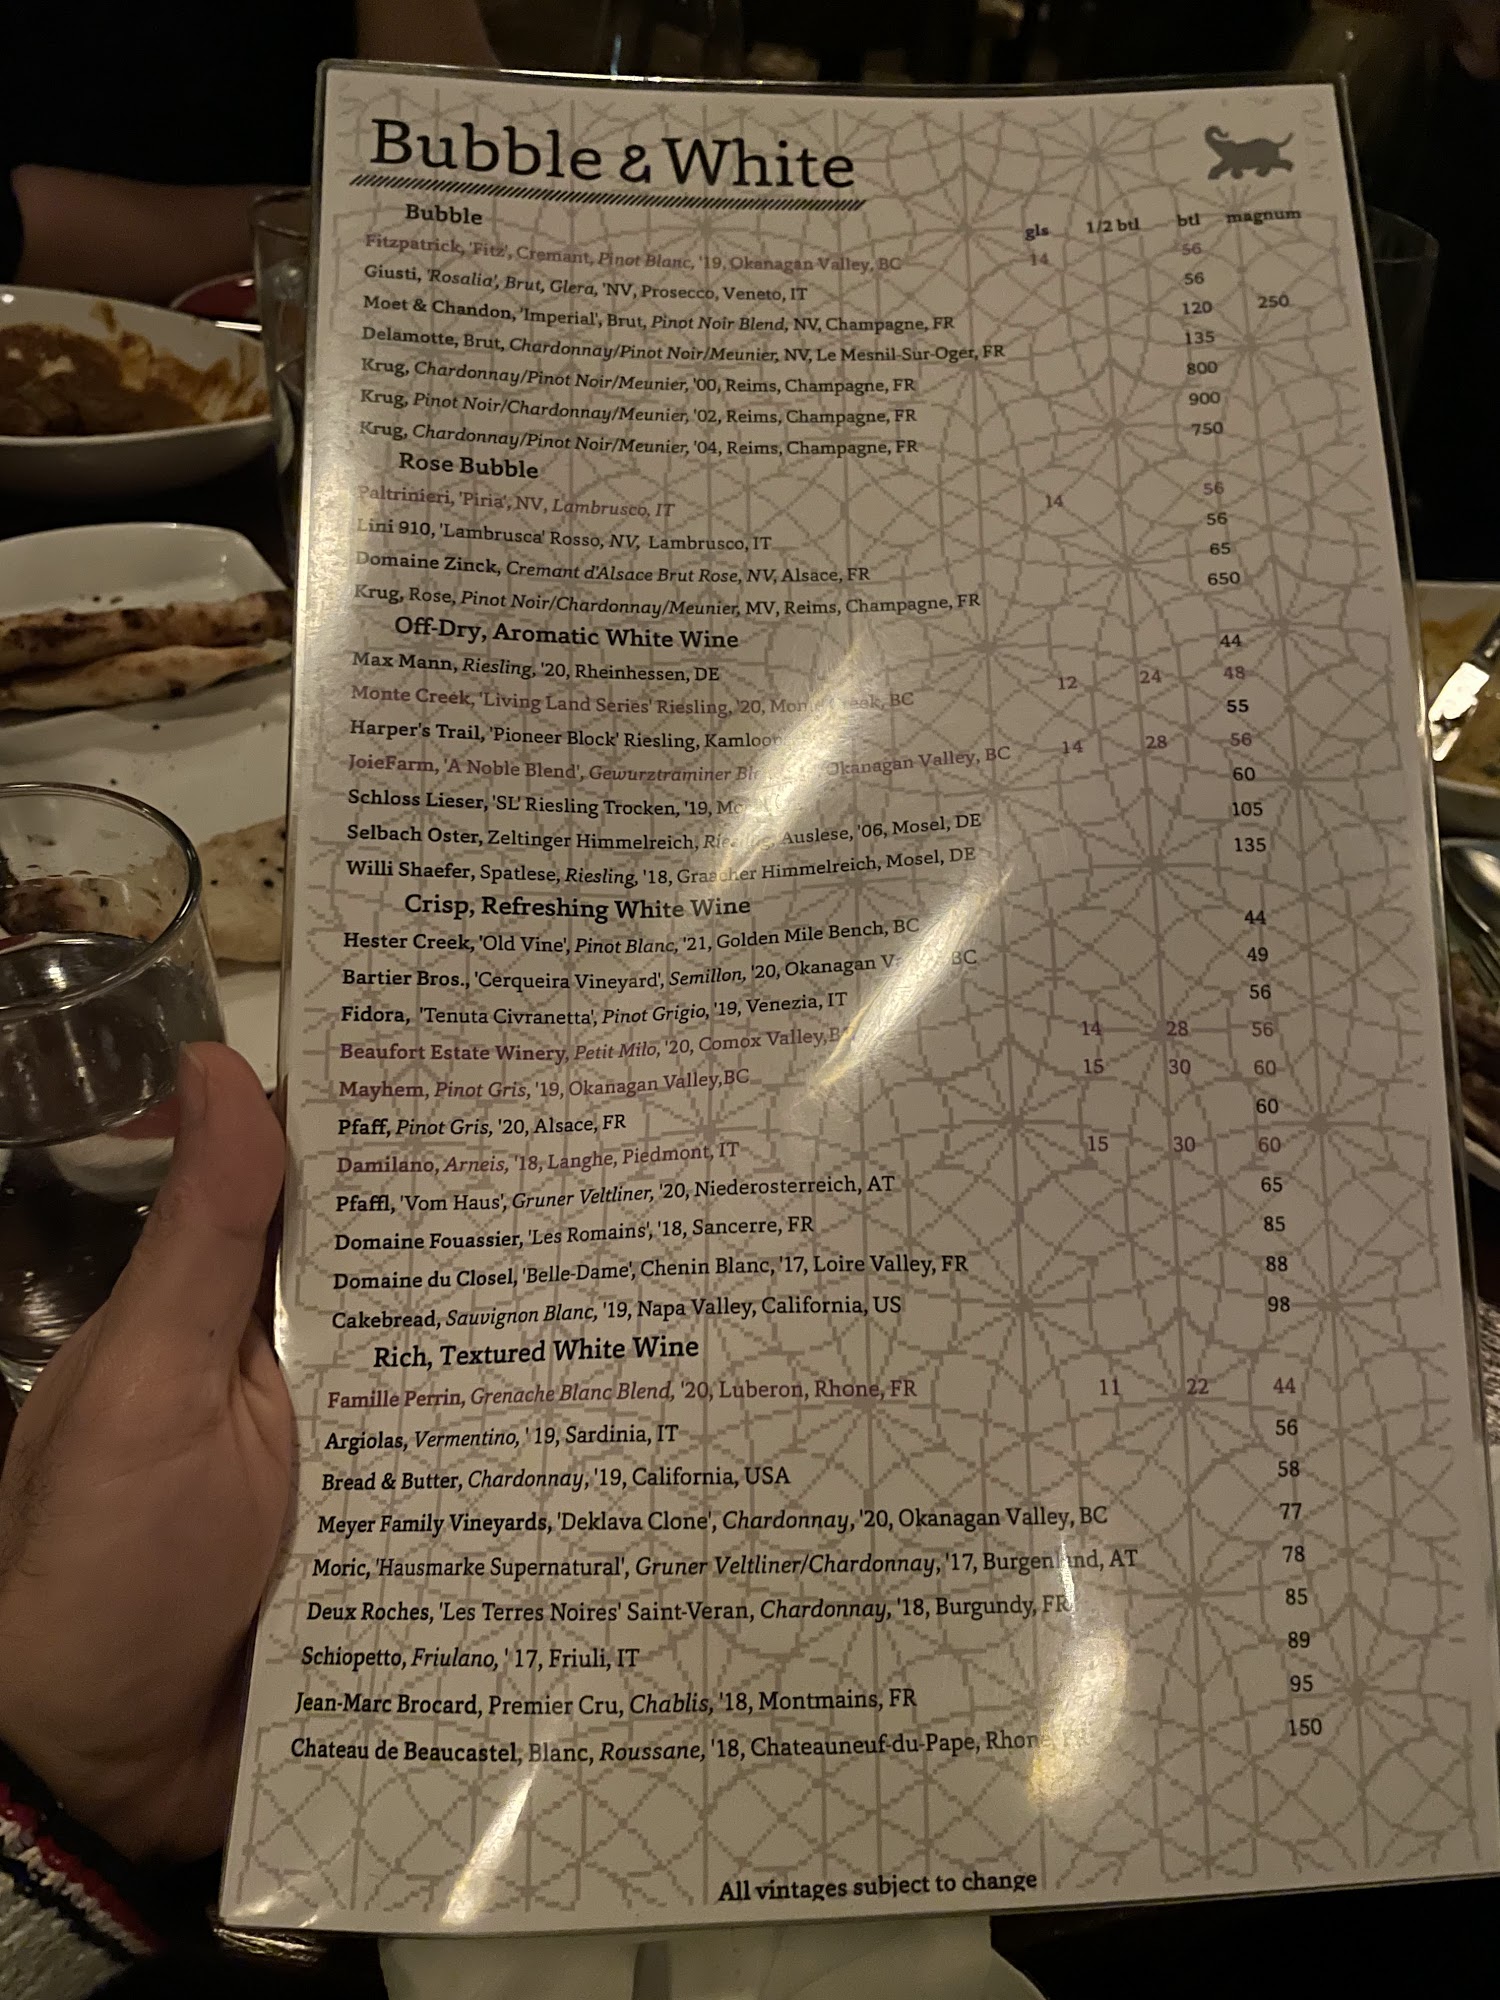 Bubble & White
Bubble gls 1/2 btl btl magnum
Fitzpatrick, 'Fitz', Cremant, Pinot Blanc, '19, Okanagan Valley, BC 14 56
Giusti, 'Rosalia', Brut, Glera, 'NV, Prosecco, Veneto, IT 56
Moet & Chandon, 'Imperial', Brut, Pinot Noir Blend, NV, Champagne, FR 120 250
Delamotte, Brut, Chardonnay/Pinot Noir/Meunier, NV, Le Mesnil-Sur-Oger, FR 135
Krug, Chardonnay/Pinot Noir/Meunier, '00, Reims, Champagne, FR 800
Krug, Pinot Noir/Chardonnay/Meunier, '02, Reims, Champagne, FR 900
Krug, Chardonnay/Pinot Noir/Meunier, '04, Reims, Champagne, FR 750
Rose Bubble
Paltrinieri, 'Piria', NV, Lambrusco, IT 14 56
Lini 910, 'Lambrusca' Rosso, NV, Lambrusco, IT 56
Domaine Zinck, Cremant d'Alsace Brut Rose, NV, Alsace, FR 65
Krug, Rose, Pinot Noir/Chardonnay/Meunier, MV, Reims, Champagne, FR 650
Off-Dry, Aromatic White Wine
Max Mann, Riesling, '20, Rheinhessen, DE 44
Monte Creek, 'Living Land Series' Riesling, '20, Monte Creek, BC 12 24 48
Harper's Trail, 'Pioneer Block' Riesling, 55
JoieFarm, 'A Noble Blend', Gewurztraminer Okanagan Valley, BC 14 28 56
Schloss Lieser, 'SL' Riesling Trocken, '19, 60
Selbach Oster, Zeltinger Himmelreich, Riesling, Auslese, '06, Mosel, DE 105
Willi Shaefer, Spatlese, Riesling, '18, Graacher Himmelreich, Mosel, DE 135
Crisp, Refreshing White Wine
Hester Creek, 'Old Vine', Pinot Blanc, '21, Golden Mile Bench, BC 44
Bartier Bros., 'Cerqueira Vineyard', Semillon, '20, Okanagan Valley, BC 49
Fidora, 'Tenuta Civranetta', Pinot Grigio, '19, Venezia, IT 56
Beaufort Estate Winery, Petit Milo, '20, Comox Valley,BC 14 28 56
Mayhem, Pinot Gris, '19, Okanagan Valley,BC 15 30 60
Pfaff, Pinot Gris, '20, Alsace, FR 60
Damilano, Arneis, '18, Langhe, Piedmont, IT 15 30 60
Pfaffl, 'Vom Haus', Gruner Veltliner, '20, Niederosterreich, AT 65
Domaine Fouassier, 'Les Romains', '18, Sancerre, FR 85
Domaine du Closel, 'Belle-Dame', Chenin Blanc, '17, Loire Valley, FR 88
Cakebread, Sauvignon Blanc, '19, Napa Valley, California, US 98
Rich, Textured White Wine
Famille Perrin, Grenache Blanc Blend, '20, Luberon, Rhone, FR 11 22 44
Argiolas, Vermentino, ' 19, Sardinia, IT 56
Bread & Butter, Chardonnay, '19, California, USA 58
Meyer Family Vineyards, 'Deklava Clone', Chardonnay, '20, Okanagan Valley, BC 77
Moric, 'Hausmarke Supernatural', Gruner Veltliner/Chardonnay, '17, Burgenland, AT 78
Deux Roches, 'Les Terres Noires' Saint-Veran, Chardonnay, '18, Burgundy, FR 85
Schiopetto, Friulano, ' 17, Friuli, IT 89
Jean-Marc Brocard, Premier Cru, Chablis, '18, Montmains, FR 95
Chateau de Beaucastel, Blanc, Roussane, '18, Chateauneuf-du-Pape, Rhone, 150
All vintages subject to change